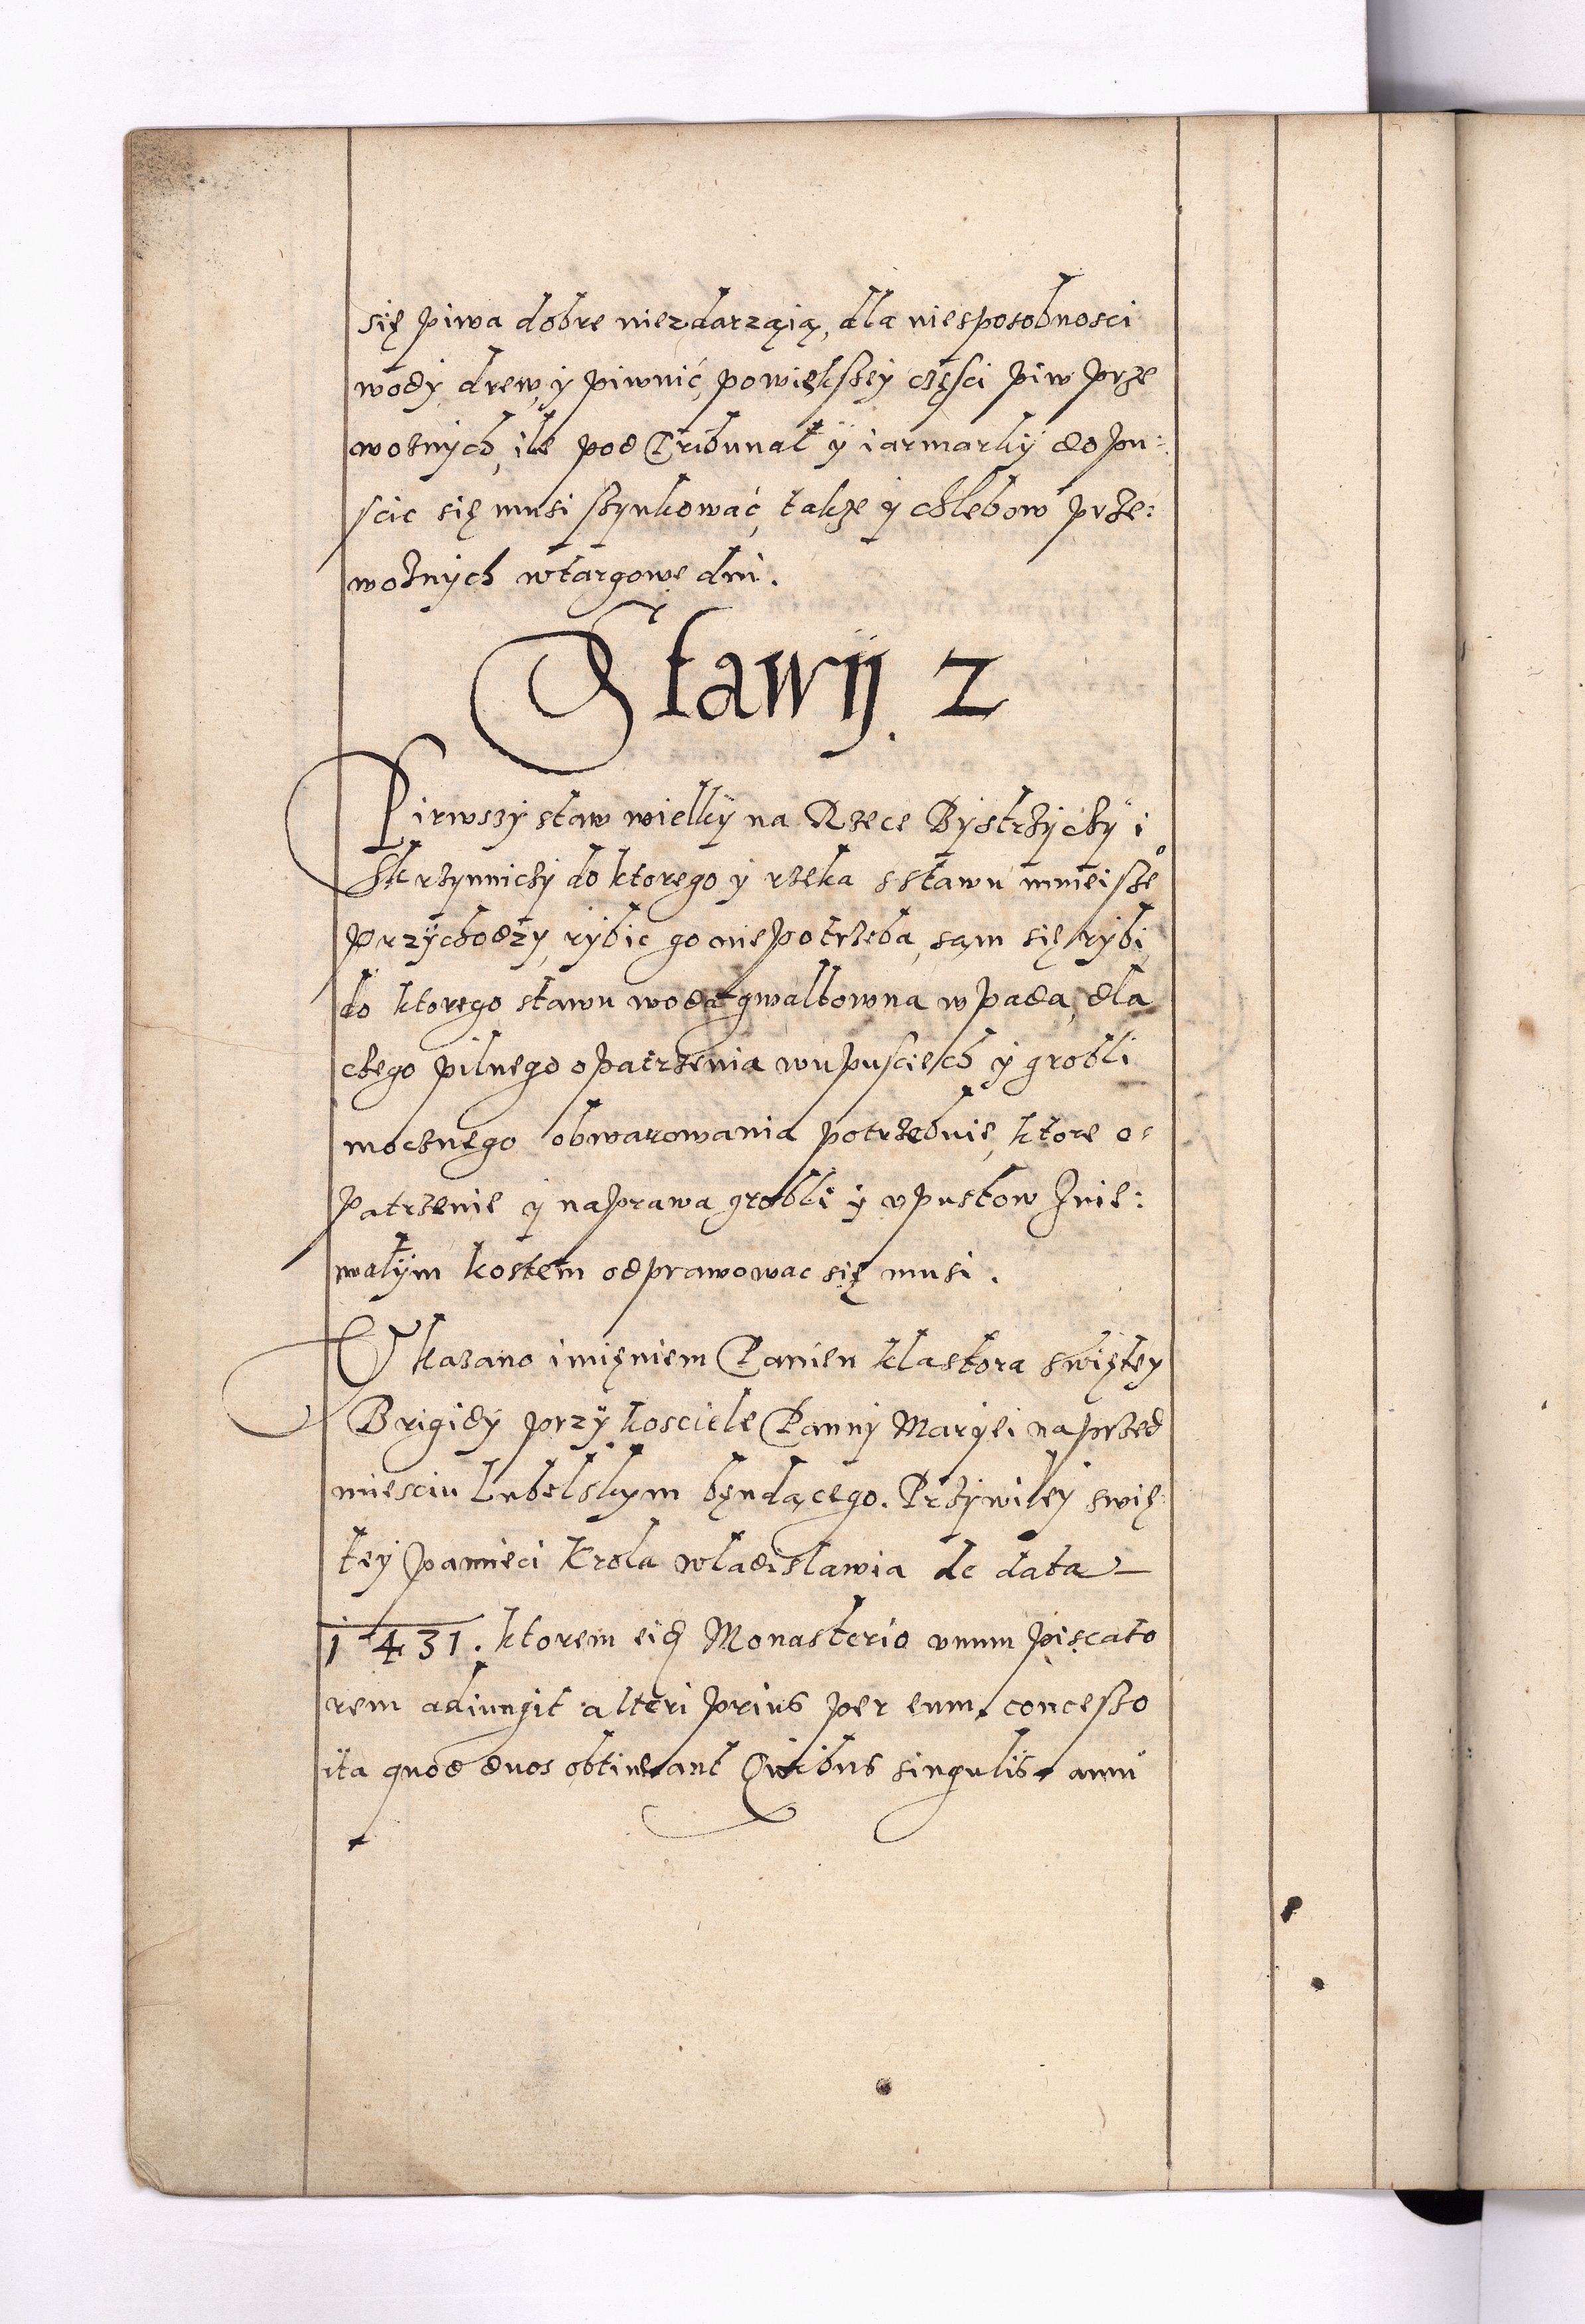 się piwa dobre niezdarząią, dla niesposobnosci
wody, drew, y piwnić, powiększey częsci piw prze
woznych, ile pod Tribunał ÿ iarmarkÿ dopu:
scic się musi szynkować, takze y chlebow prze:
woznych wtargowe dni.
Stawÿ. 2
Pirwszÿ staw wielkÿ na Rzece Bystrzyckÿ i
Skrzynniczy do ktorego y rzeka sstawu mnieisze°
przÿchodzy, rybic go niepotrzeba, sąm się rybi,
do ktorego stawu woda gwaltowna wpada, dla
czego pilnego opatrzenia wupusciech ÿ grobli
mocznego obwarowania potrzebuie, ktore o:
patrzenie y naprawa grobli ÿ upustow Znie:
małÿm kostem odprawowac się musi.
Okazano imięniem Panien klastora swiętey
Brigidÿ przÿ kosciele Pannÿ Maryei naprzed
miesciu Lubelskym bęndącego. Przÿwiley swię:
tey pamieci Krola wladislawia de data
1431. ktorem eid Monasterio unum piscato
rem adiungit alteri prius per eum concesso
ita quod duos obtineant Quibus singulis annu